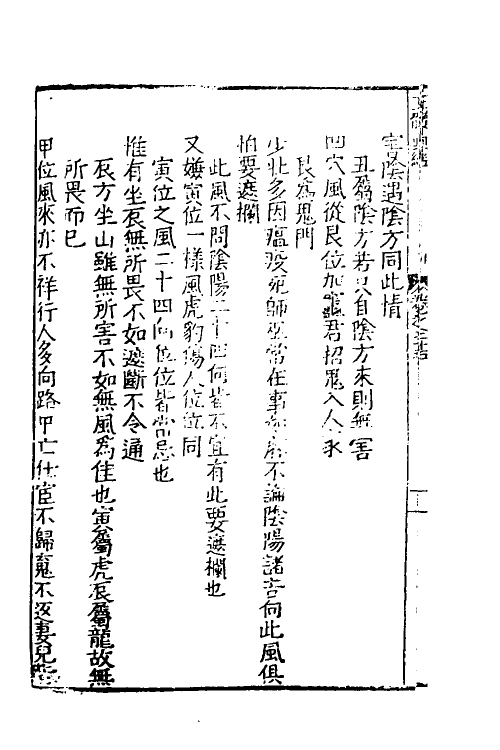 宅陰遇陰方同此情
丑屬陰方若只自陰方來則無害
四穴風從艮位加竈君招鬼入人家
艮為鬼門
少壯多因瘟疫死師巫常在事如麻不論陰陽諸吉向此風俱
怕要遮欄
此風不問陰陽二十四向皆不宜有此要遮欄也
又嫌寅位一樣風虎豹傷人位位同
寅位之風二十四向位位皆當忌也
惟有坐辰無所畏不如遮斷不令通
辰方坐山雖無所害不如無風為佳也寅屬虎辰屬龍故無
所畏而已
甲位風來亦不祥行人多向路中亡仕宦不歸魂不返妻兒